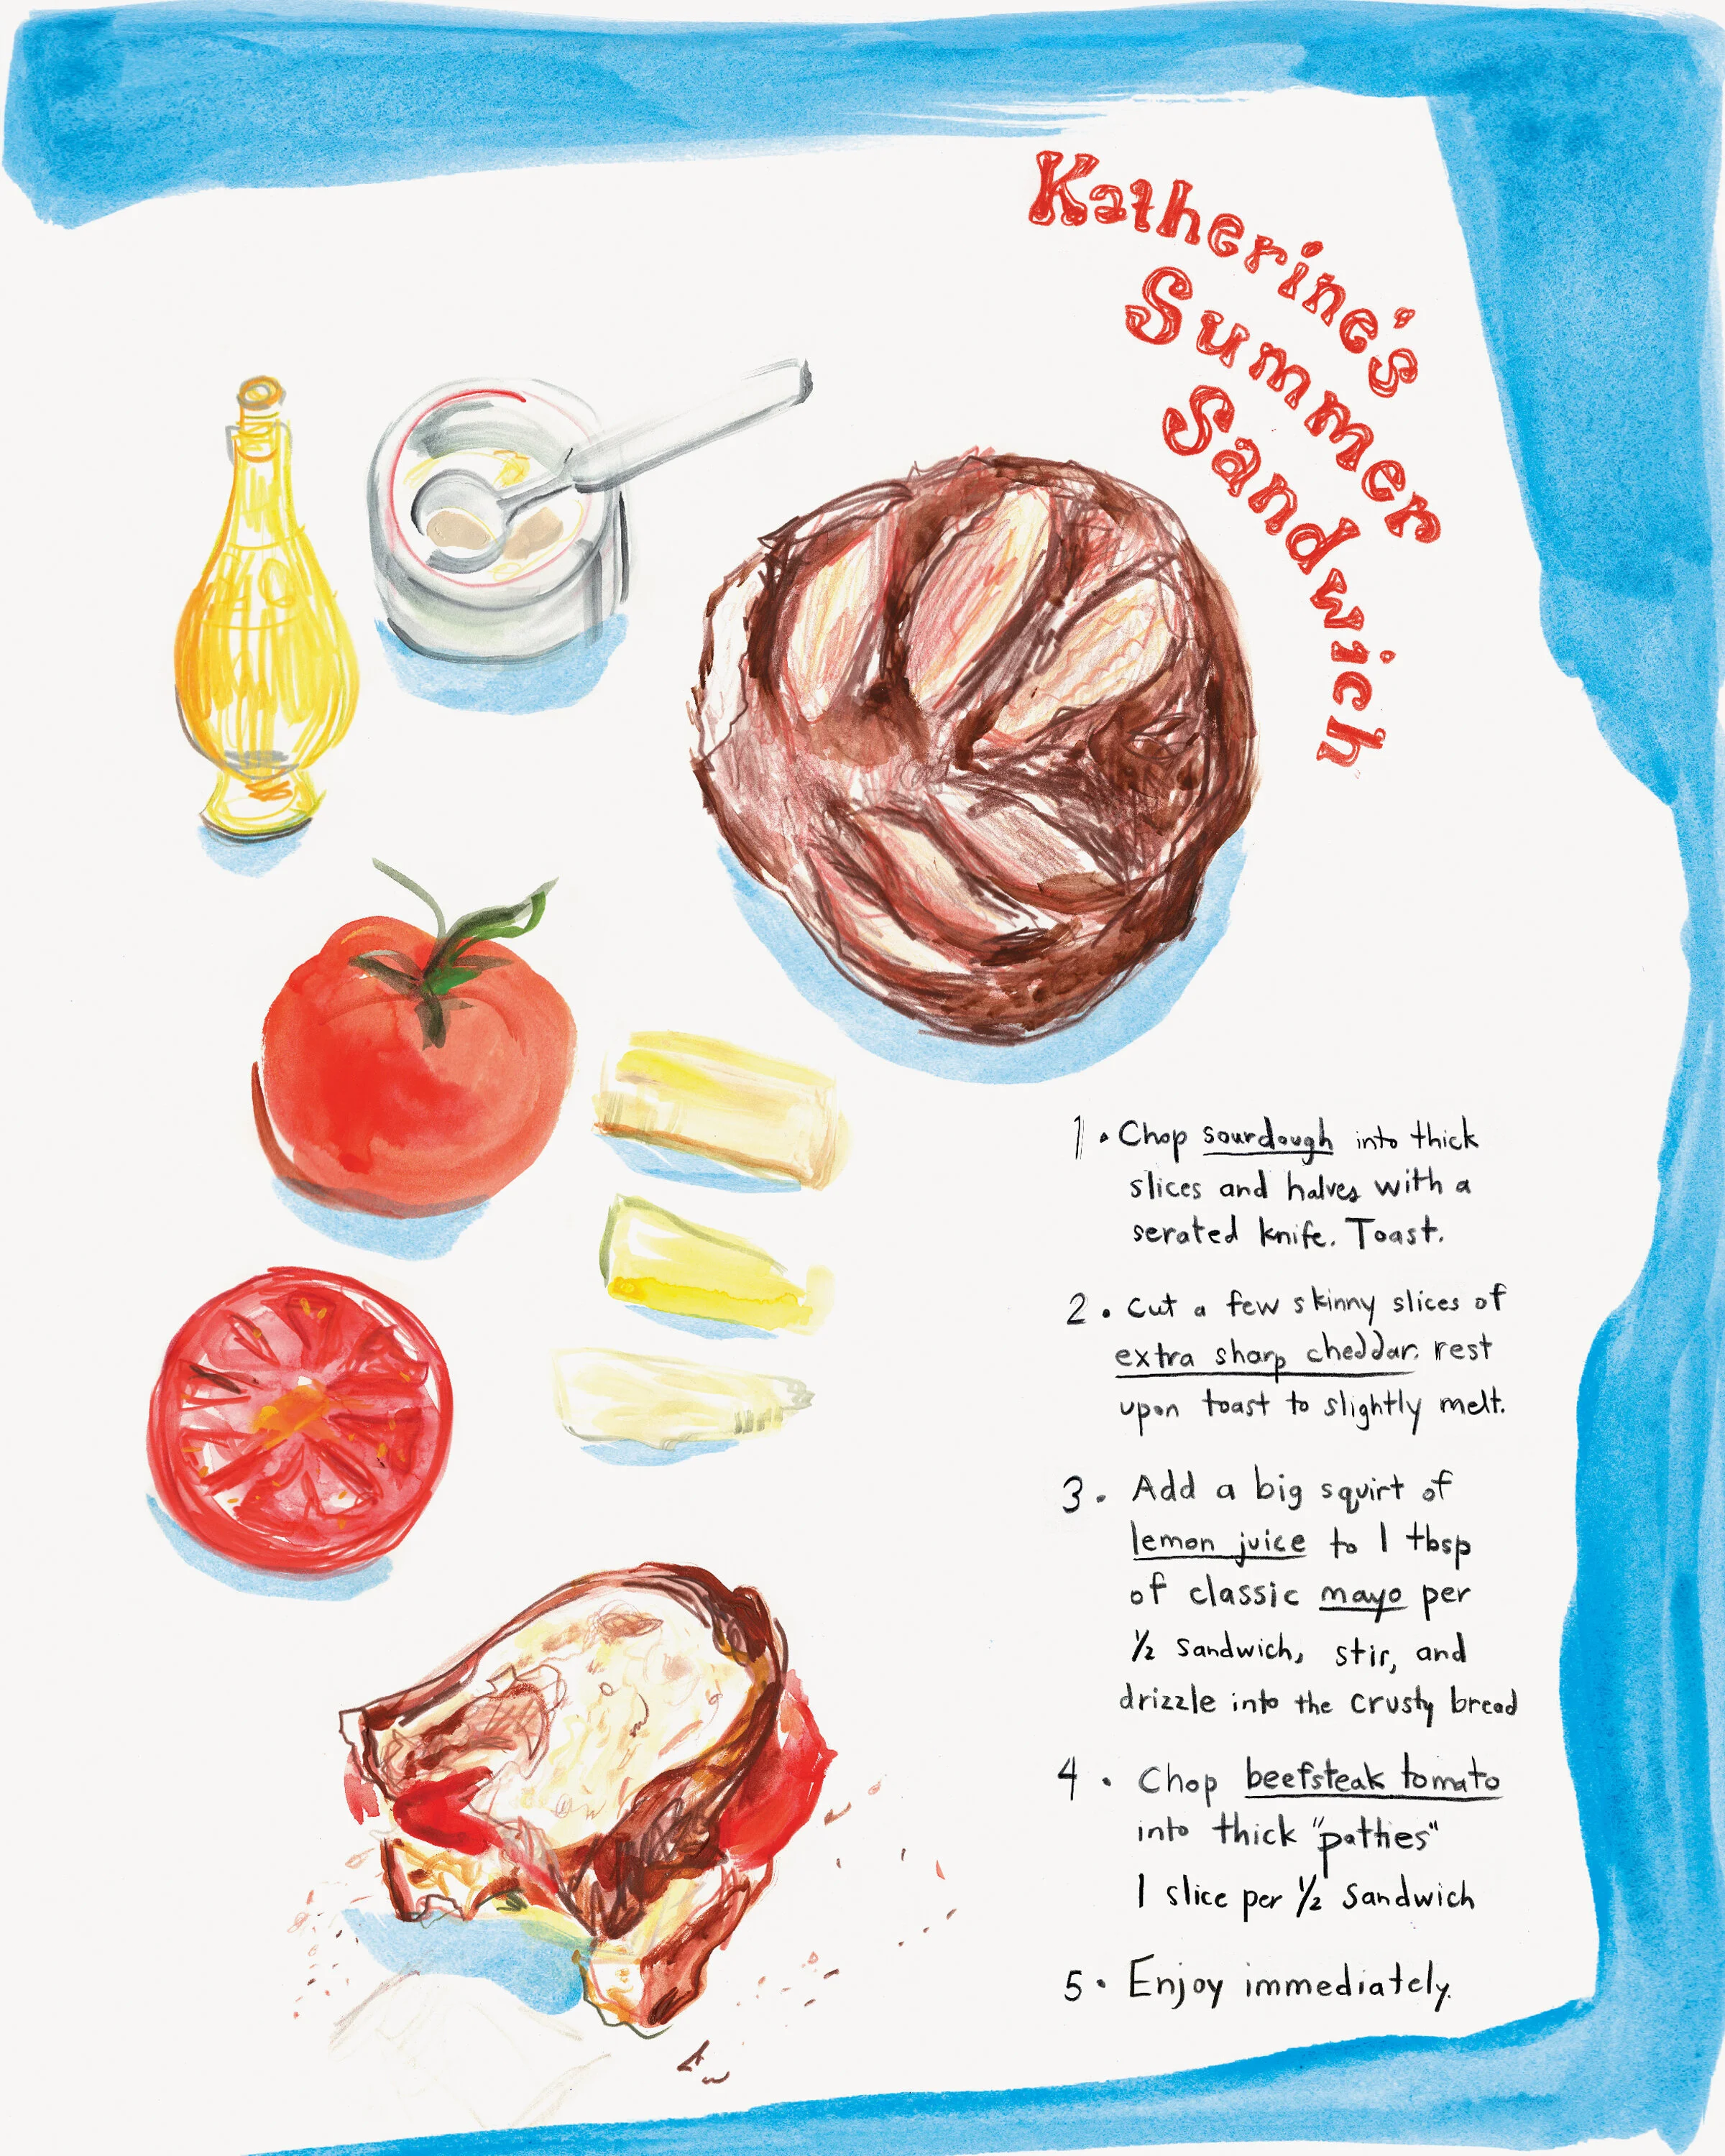 Katherine's
Summer
Sandwich
1. Chop sourdough into thick
slices and halves with a
serated knife. Toast.
2. Cut a few skinny slices of
extra sharp cheddar. rest
upon toast to slightly melt.
3. Add a big squirt of
lemon juice to 1 tbsp
of classic mayo per
1/2 sandwich, stir, and
drizzle into the crusty bread
4. Chop beefsteak tomato
into thick "patties"
1 slice per 1/2 sandwich
5. Enjoy immediately.